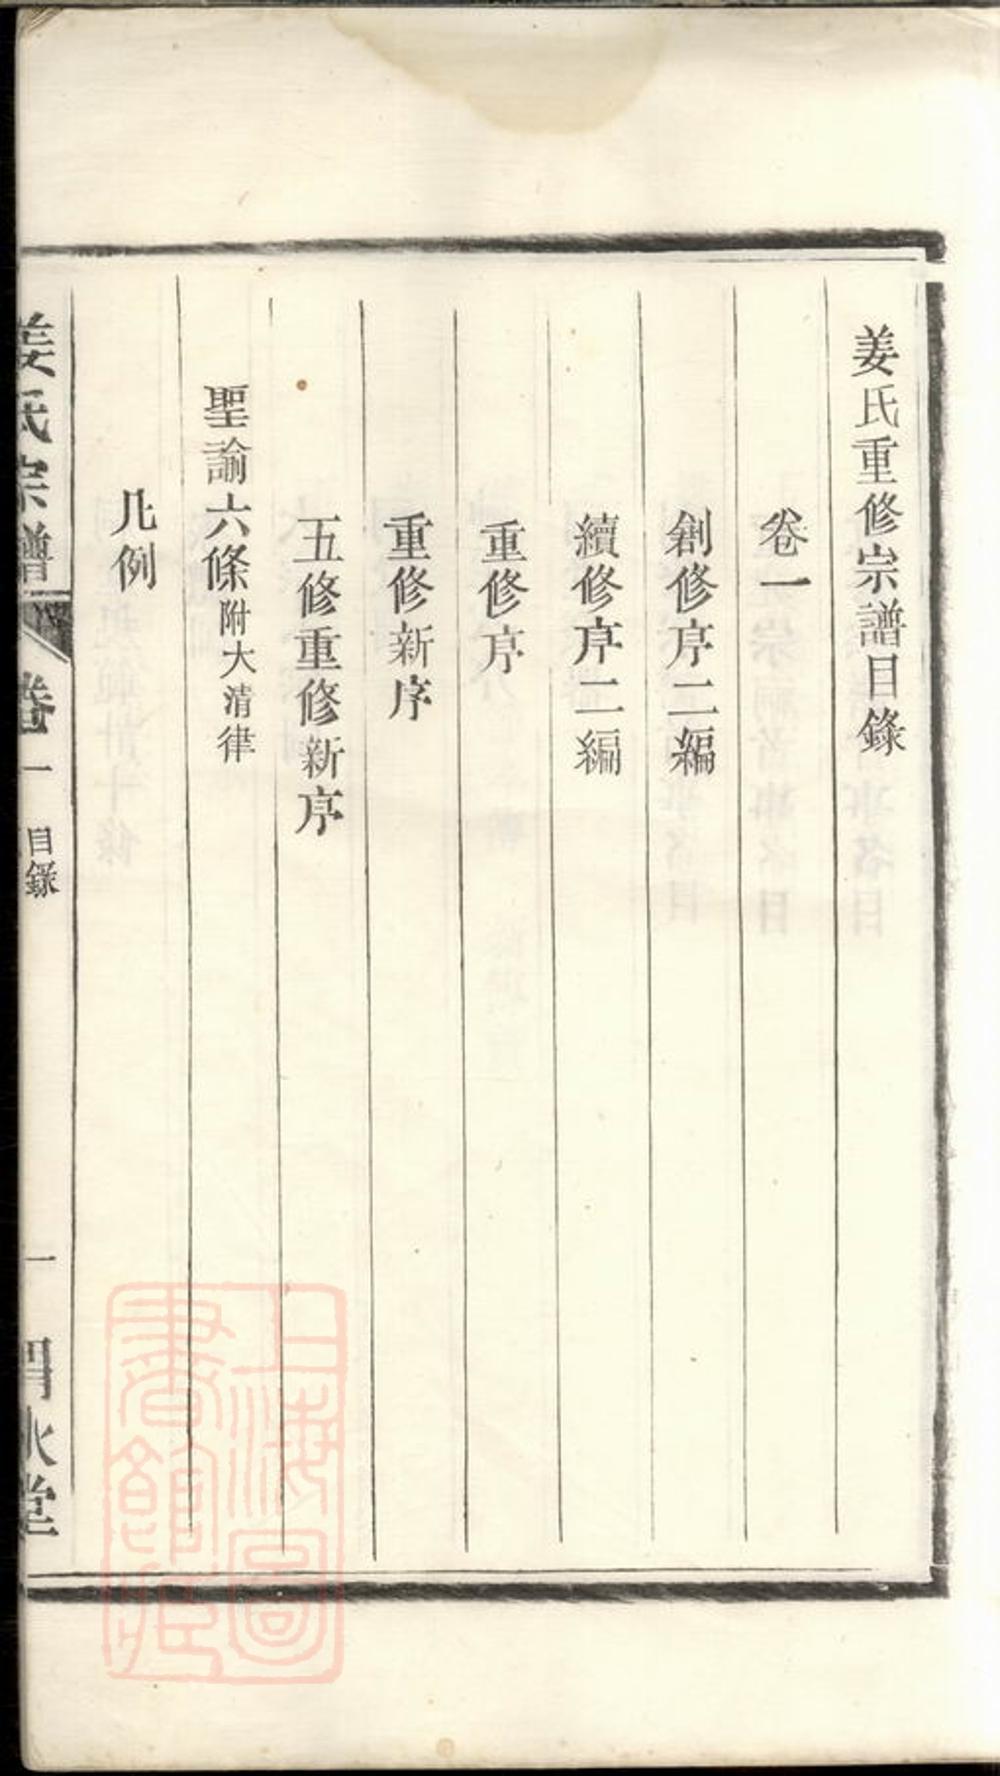 姜氏重修宗譜目錄
卷一
創修序二編
續修序二編
重修序
重修新序
五修重修新序
聖諭六條附大清律
凡例
姜氏宗譜 卷一 目錄 一
上海圖書館藏